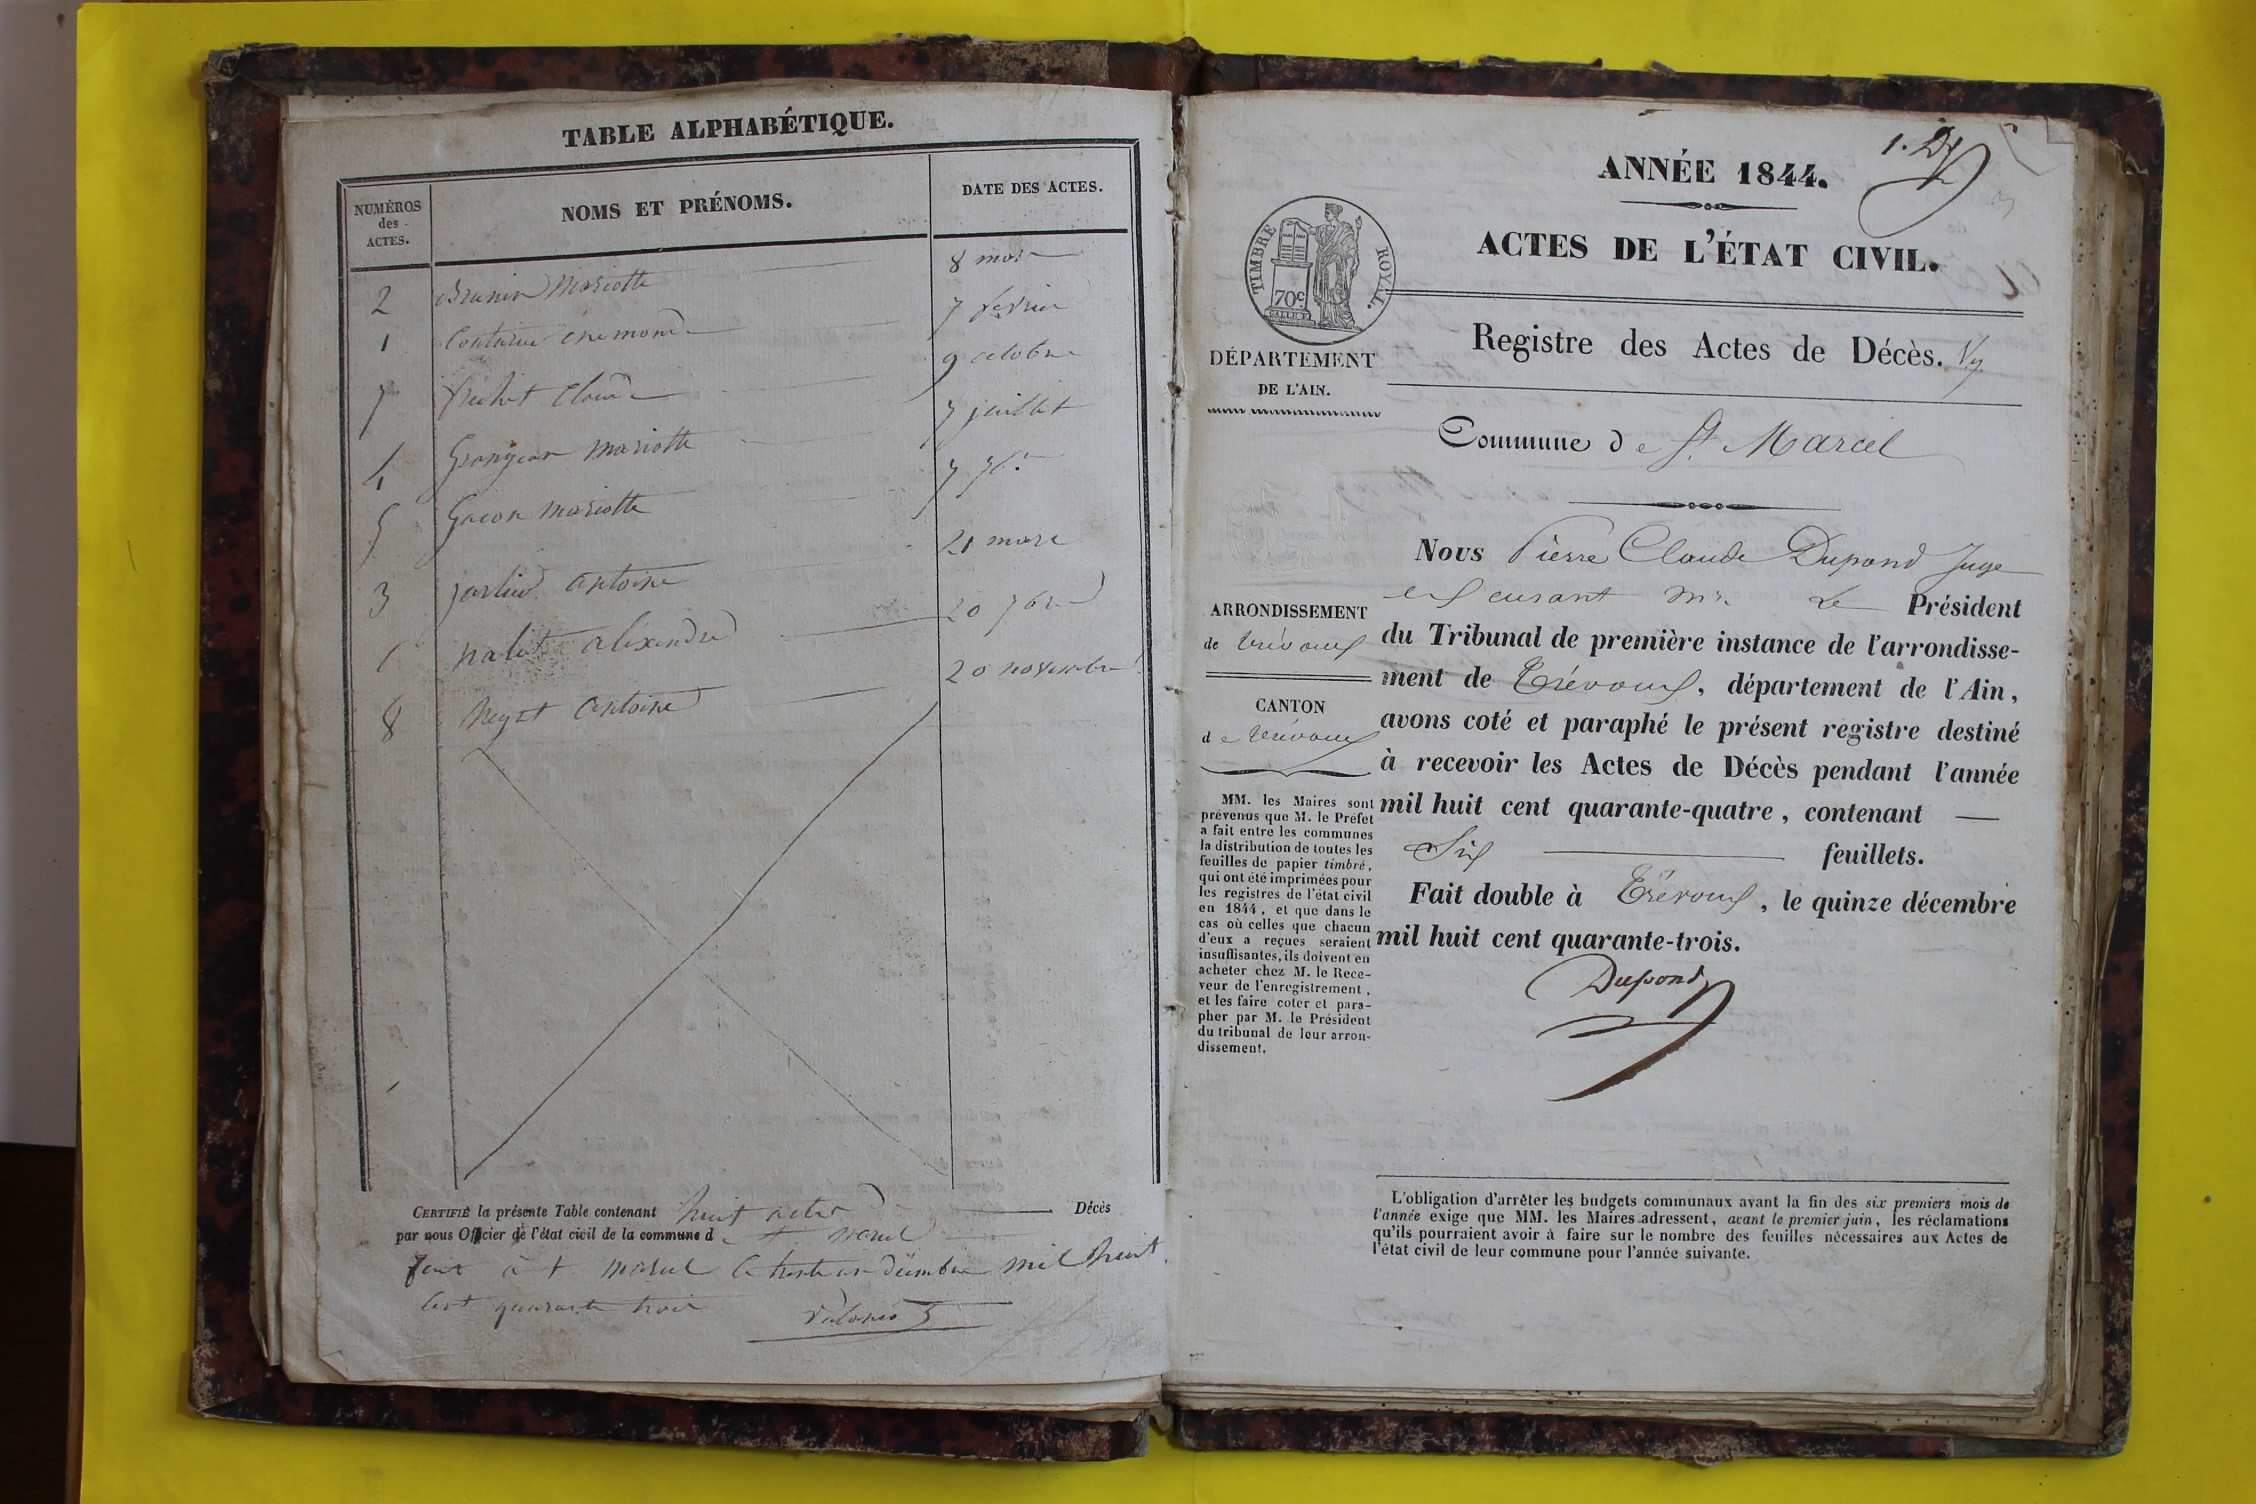 TABLE ALPHABÉTIQUE.
NUMÉROS
des
ACTES.
NOMS ET PRÉNOMS.
DATE DES ACTES.
2 Brunin Mariette 8 mars
1 7 février
7 Claude 9 octobre
4 Grangean Mariette 7 juillet
5 Gacon Mariette 7 7bre
3 jarlier antoine 21 mars
6 alexandre 20 7bre
8 antoine 20 novembre
CERTIFIÉ la présente Table contenant huit actes Décès
par nous Officier de l'état civil de la commune d St Marcel
fait à St marcel le trente un décembre mil huit
cent quarante trois
1. Dd
ANNÉE 1844.
ACTES DE L'ÉTAT CIVIL.
TIMBRE ROYAL.
70c
DÉPARTEMENT
DE L'AIN.
Registre des Actes de Décès.
Commune de St Marcel
Nous Pierre Claude Dupond Juge
en exerçant Mr. Le Président
du Tribunal de première instance de l'arrondisse-
ment de Trévoux, département de l'Ain,
avons coté et paraphé le présent registre destiné
à recevoir les Actes de Décès pendant l'année
mil huit cent quarante-quatre, contenant —
Six feuillets.
Fait double à Trévoux, le quinze décembre
mil huit cent quarante-trois.
Dupond
ARRONDISSEMENT
de Trévoux
CANTON
de Trévoux
MM. les Maires sont
prévenus que M. le Préfet
a fait entre les communes
la distribution de toutes les
feuilles de papier timbré,
qui ont été imprimées pour
les registres de l'état civil
en 1844, et que dans le
cas où celles que chacun
d'eux a reçues seraient
insuffisantes, ils doivent en
acheter chez M. le Rece-
veur de l'enregistrement,
et les faire coter et para-
pher par M. le Président
du tribunal de leur arron-
dissement.
L'obligation d'arrêter les budgets communaux avant la fin des six premiers mois de
l'année exige que MM. les Maires adressent, avant le premier juin, les réclamations
qu'ils pourraient avoir à faire sur le nombre des feuilles nécessaires aux Actes de
l'état civil de leur commune pour l'année suivante.